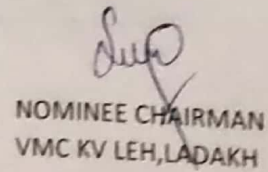 NOMINEE CHAIRMAN
VMC KV LEH,LADAKH